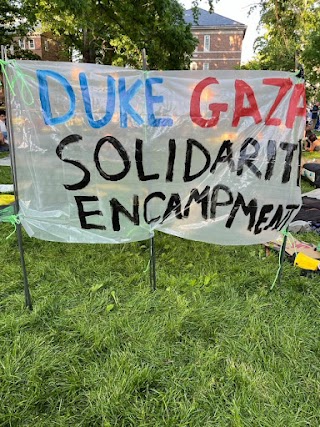 DUKE GAZA
SOLIDARIT
ENCAMPMENT